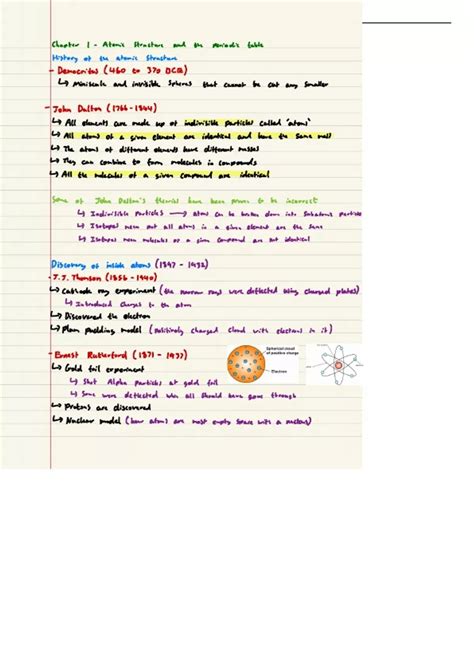 Chapter 1 - Atomic Structure and the periodic table
History of the atomic structure
- Democritus (460 to 370 BCE)
↳ Miniscule and invisible spheres that cannot be cut any smaller
- John Dalton (1766-1844)
↳ All elements are made up of indivisible particles called 'atoms'
↳ All atoms of a given element are identical and have the same mass
↳ The atoms of different elements have different masses
↳ They can combine to form molecules in compounds
↳ All the molecules of a given compound are identical
Some of John Dalton's theories have been proven to be incorrect
↳ Indivisible particles → atoms can be broken down into subatomic particles
↳ Isotopes mean not all atoms in a given element are the same
↳ Isotopes mean molecules of a given compound are not identical
Discovery of inside atoms (1897 - 1932)
- J.J. Thomson (1856 - 1940)
↳ Cathode ray experiment (the narrow rays were deflected using charged plates)
↳ Introduced charges to the atom
↳ Discovered the electron
↳ Plum pudding model (Positively charged cloud with electrons in it)
- Ernest Rutherford (1871 - 1937)
Spherical cloud
of positive charge
Electron
↳ Gold foil experiment
↳ Shot Alpha particles at gold foil
↳ Some were deflected when all should have gone through
↳ Protons are discovered
↳ Nuclear model (how atoms are most empty space with a nucleus)